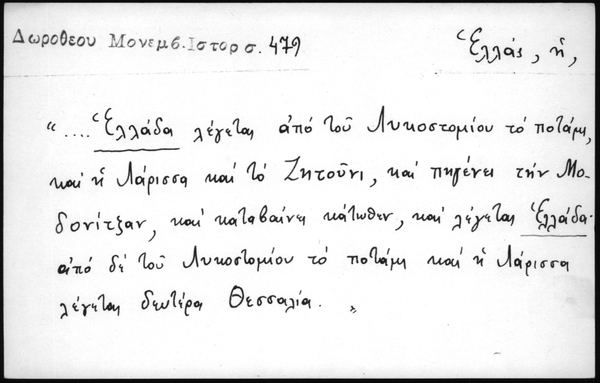 Δωροθεου Μονεμβ. Ιστορ σ. 479
Ἑλλάς, ἡ,
“.... Ἑλλάδα λέγεται ἀπό τοῦ Λυκοστομίου τό ποτάμι,
καί ἡ Λάρισσα καί τό Ζητοῦνι, καί πηγένει τήν Μο-
δονίτζαν, καί καταβαίνει κάτωθεν, καί λέγεται Ἑλλάδα·
ἀπό δέ τοῦ Λυκοστομίου τό ποτάμι καί ἡ Λάρισσα
λέγεται δευτέρα Θεσσαλία. „